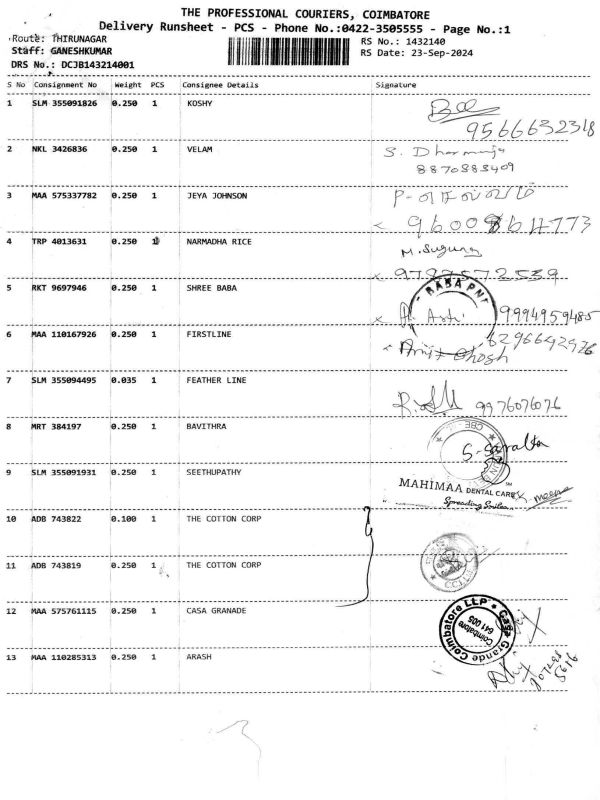 THE PROFESSIONAL COURIERS, COIMBATORE
Delivery Runsheet - PCS - Phone No.:0422-3505555 - Page No.:1
Route: THIRUNAGAR
RS No.: 1432140
Staff: GANESHKUMAR
RS Date: 23-Sep-2024
DRS No.: DCJB143214001
S No Consignment No Weight PCS Consignee Details Signature
1 SLM 355091826 0.250 1 KOSHY
9566632318
2 NKL 3426836 0.250 1 VELAM S. Dharmaraja
8870883409
3 MAA 575337782 0.250 1 JEYA JOHNSON
4 TRP 4013631 0.250 1 NARMADHA RICE M. Suguna
5 RKT 9697946 0.250 1 SHREE BABA BABA
9994959485
6 MAA 110167926 0.250 1 FIRSTLINE Amit Ghosh
6296642976
7 SLM 355094495 0.035 1 FEATHER LINE
9976076076
8 MRT 384197 0.250 1 BAVITHRA S. Saralta
9 SLM 355091931 0.250 1 SEETHUPATHY MAHIMAA DENTAL CARE
Spreading Smiles
10 ADB 743822 0.100 1 THE COTTON CORP
11 ADB 743819 0.250 1 THE COTTON CORP
12 MAA 575761115 0.250 1 CASA GRANADE Casa Grande Coimbatore LLP
Coimbatore
641 005
13 MAA 110285313 0.250 1 ARASH